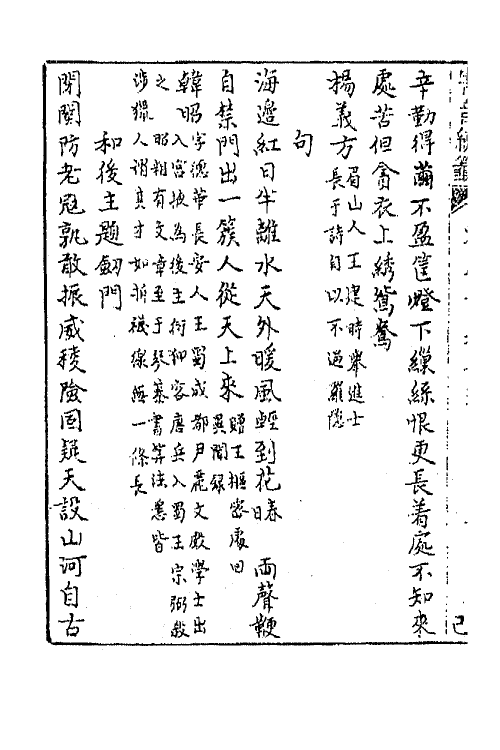 辛勤得繭不盈筐燈下繰絲恨更長著處不知來
處苦但貪衣上綉鴛鴦
楊義方眉山人王建時舉進士
長于詩自以不過羅隱
句
海邊紅日半離水天外暖風輕到花春日 両聲鞭
自禁門出一簇人從天上來贈王樞密處回
異聞録
韓昭字德華長安人王蜀成都尹麗文殿學士出
入宮掖為後主衍狎客唐兵入蜀王宗弼殺
之昭粗有文章至于琴棊書算法悉皆
涉獵人謂真才如拆襪線無一條長
和後主題劒門
閉關防老寇孰敢振威稜險固疑天設山河自古